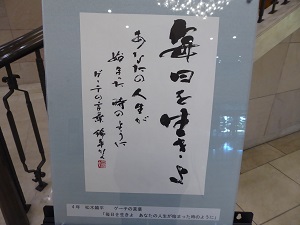 毎日を生きよ
あなたの人生が
始まった時のように
ゲーテの言葉
ゲーテの言葉
「毎日を生きよ　あなたの人生が始まった時のように」